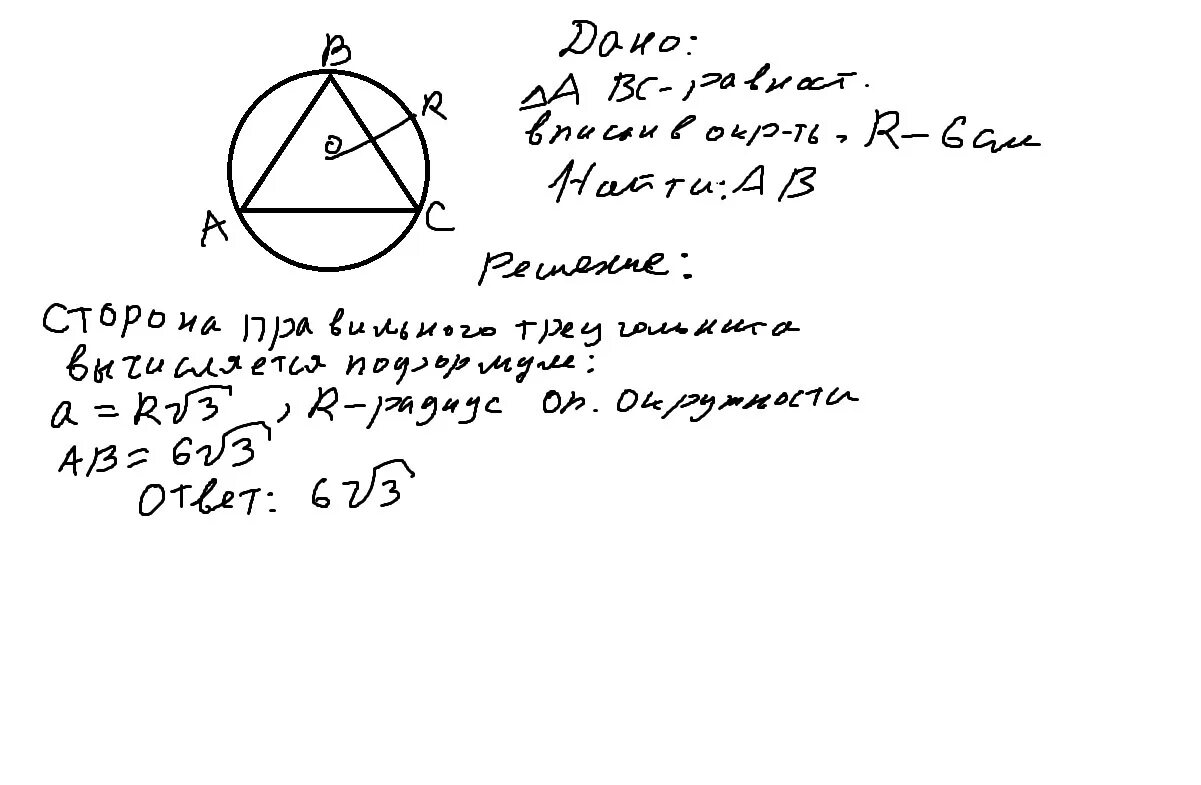 B
R
O
A
C
Дано:
△ABC-равност.
вписан в окр-ть, R-6см
Найти: AB
Решение:
Сторона правильного треугольника
вычисляется по формуле:
a = R√3, R-радиус оп. окружности
AB = 6√3
Ответ: 6√3